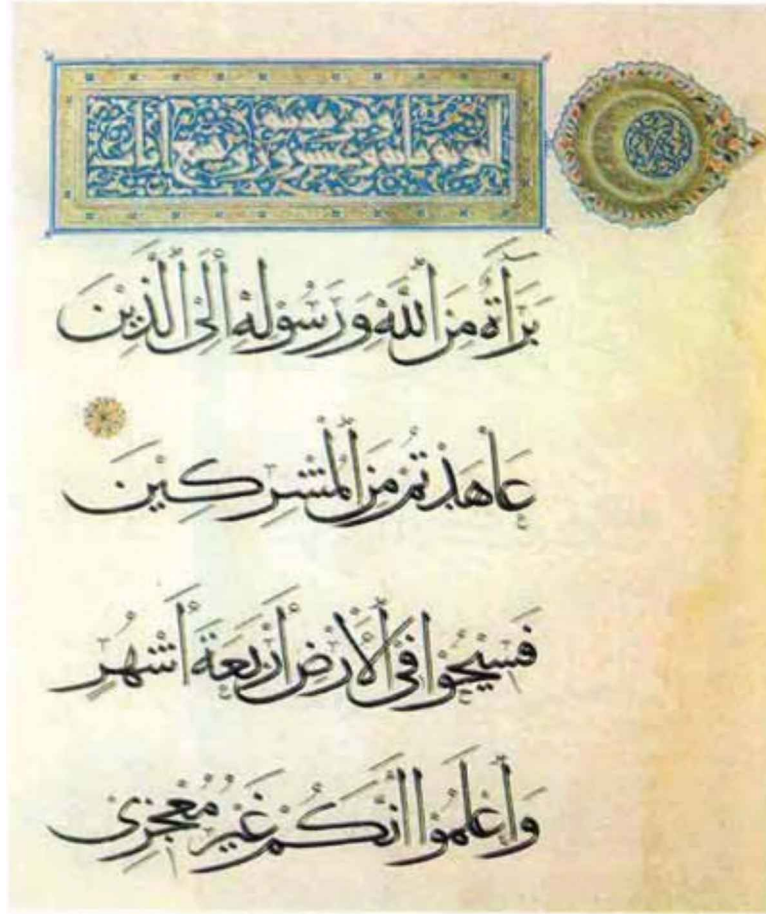 بَرَآءَةٌ مِّنَ ٱللَّهِ وَرَسُولِهِۦ إِلَى ٱلَّذِينَ
عَاهَدْتُمْ مِّنَ ٱلْمُشْرِكِينَ
فَسِيحُوا فِى ٱلْأَرْضِ أَرْبَعَةَ أَشْهُرٍ
وَٱعْلَمُوا أَنَّكُمْ غَيْرُ مُعْجِزِى